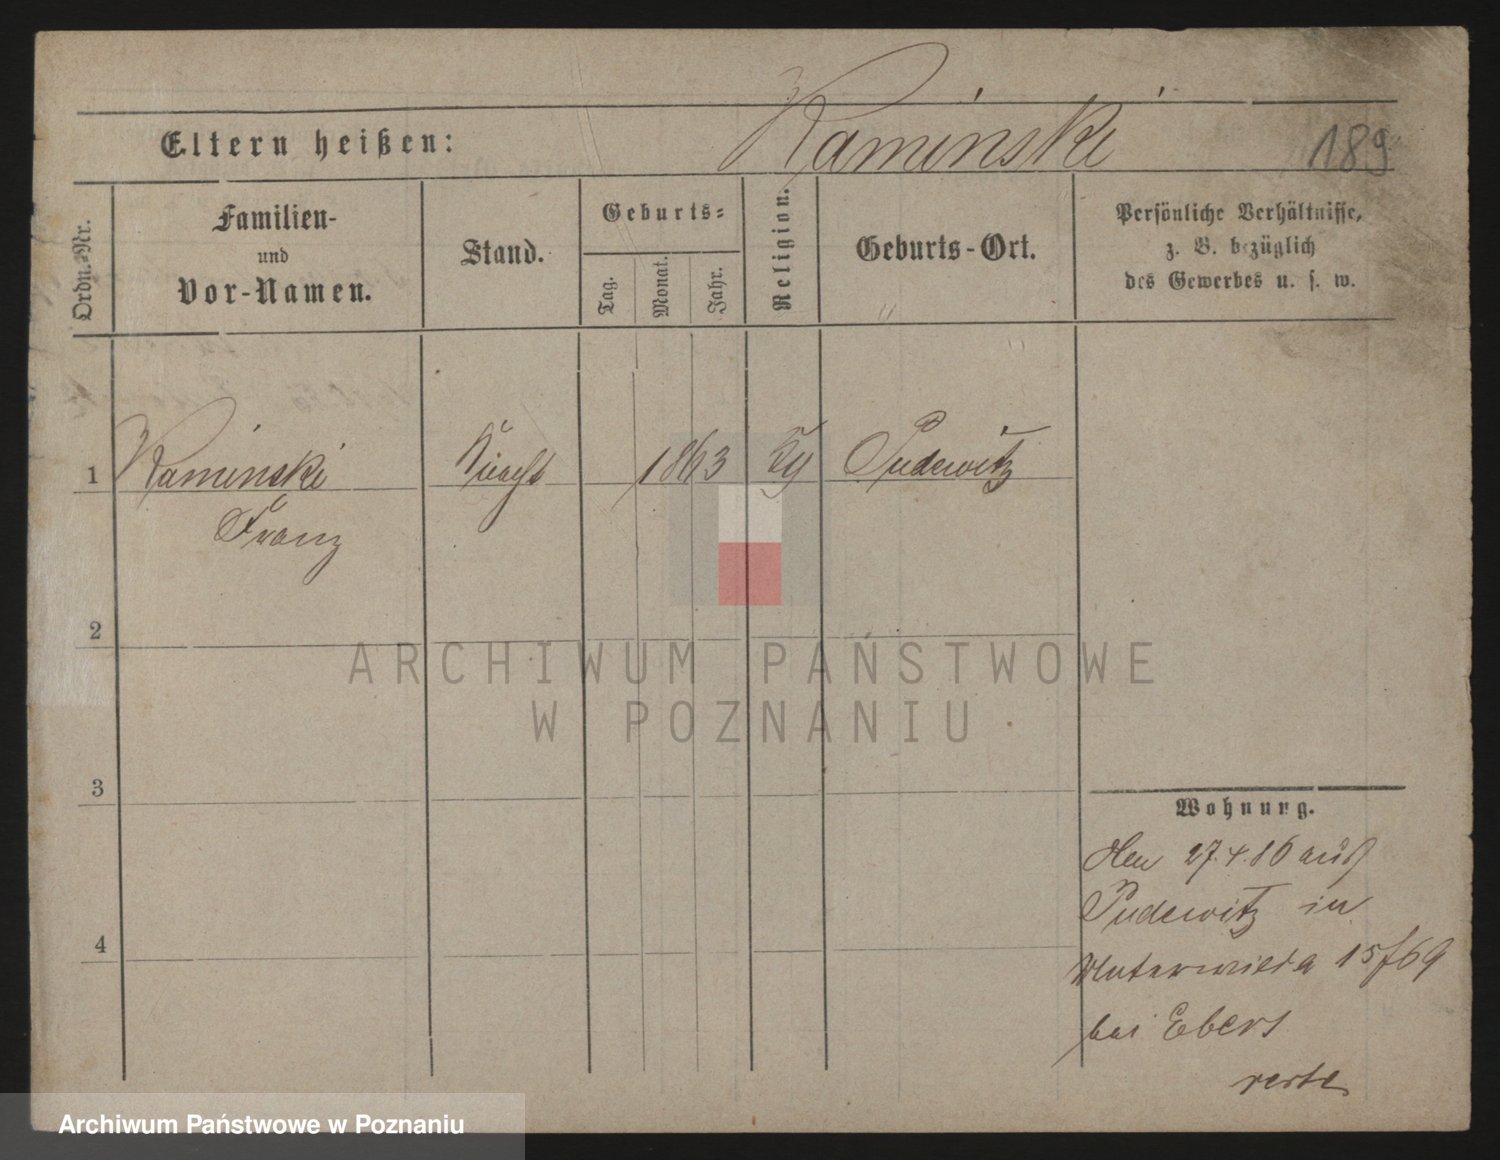 Eltern heißen: Kaminski 189
Ordn.-Nr.
Familien-
und
Vor-Namen.
Stand.
Geburts-
Tag.
Monat.
Jahr.
Religion.
Geburts-Ort.
Persönliche Verhältnisse,
z. B. bezüglich
des Gewerbes u. s. w.
1 Kaminski Knecht 1863 Pudewitz
Franz
2
3
4
Wohnung.
Den 27.4.86 aus
Pudewitz in
Unterwilda 15/69
bei Ebers
ARCHIWUM PAŃSTWOWE
W POZNANIU
Archiwum Państwowe w Poznaniu